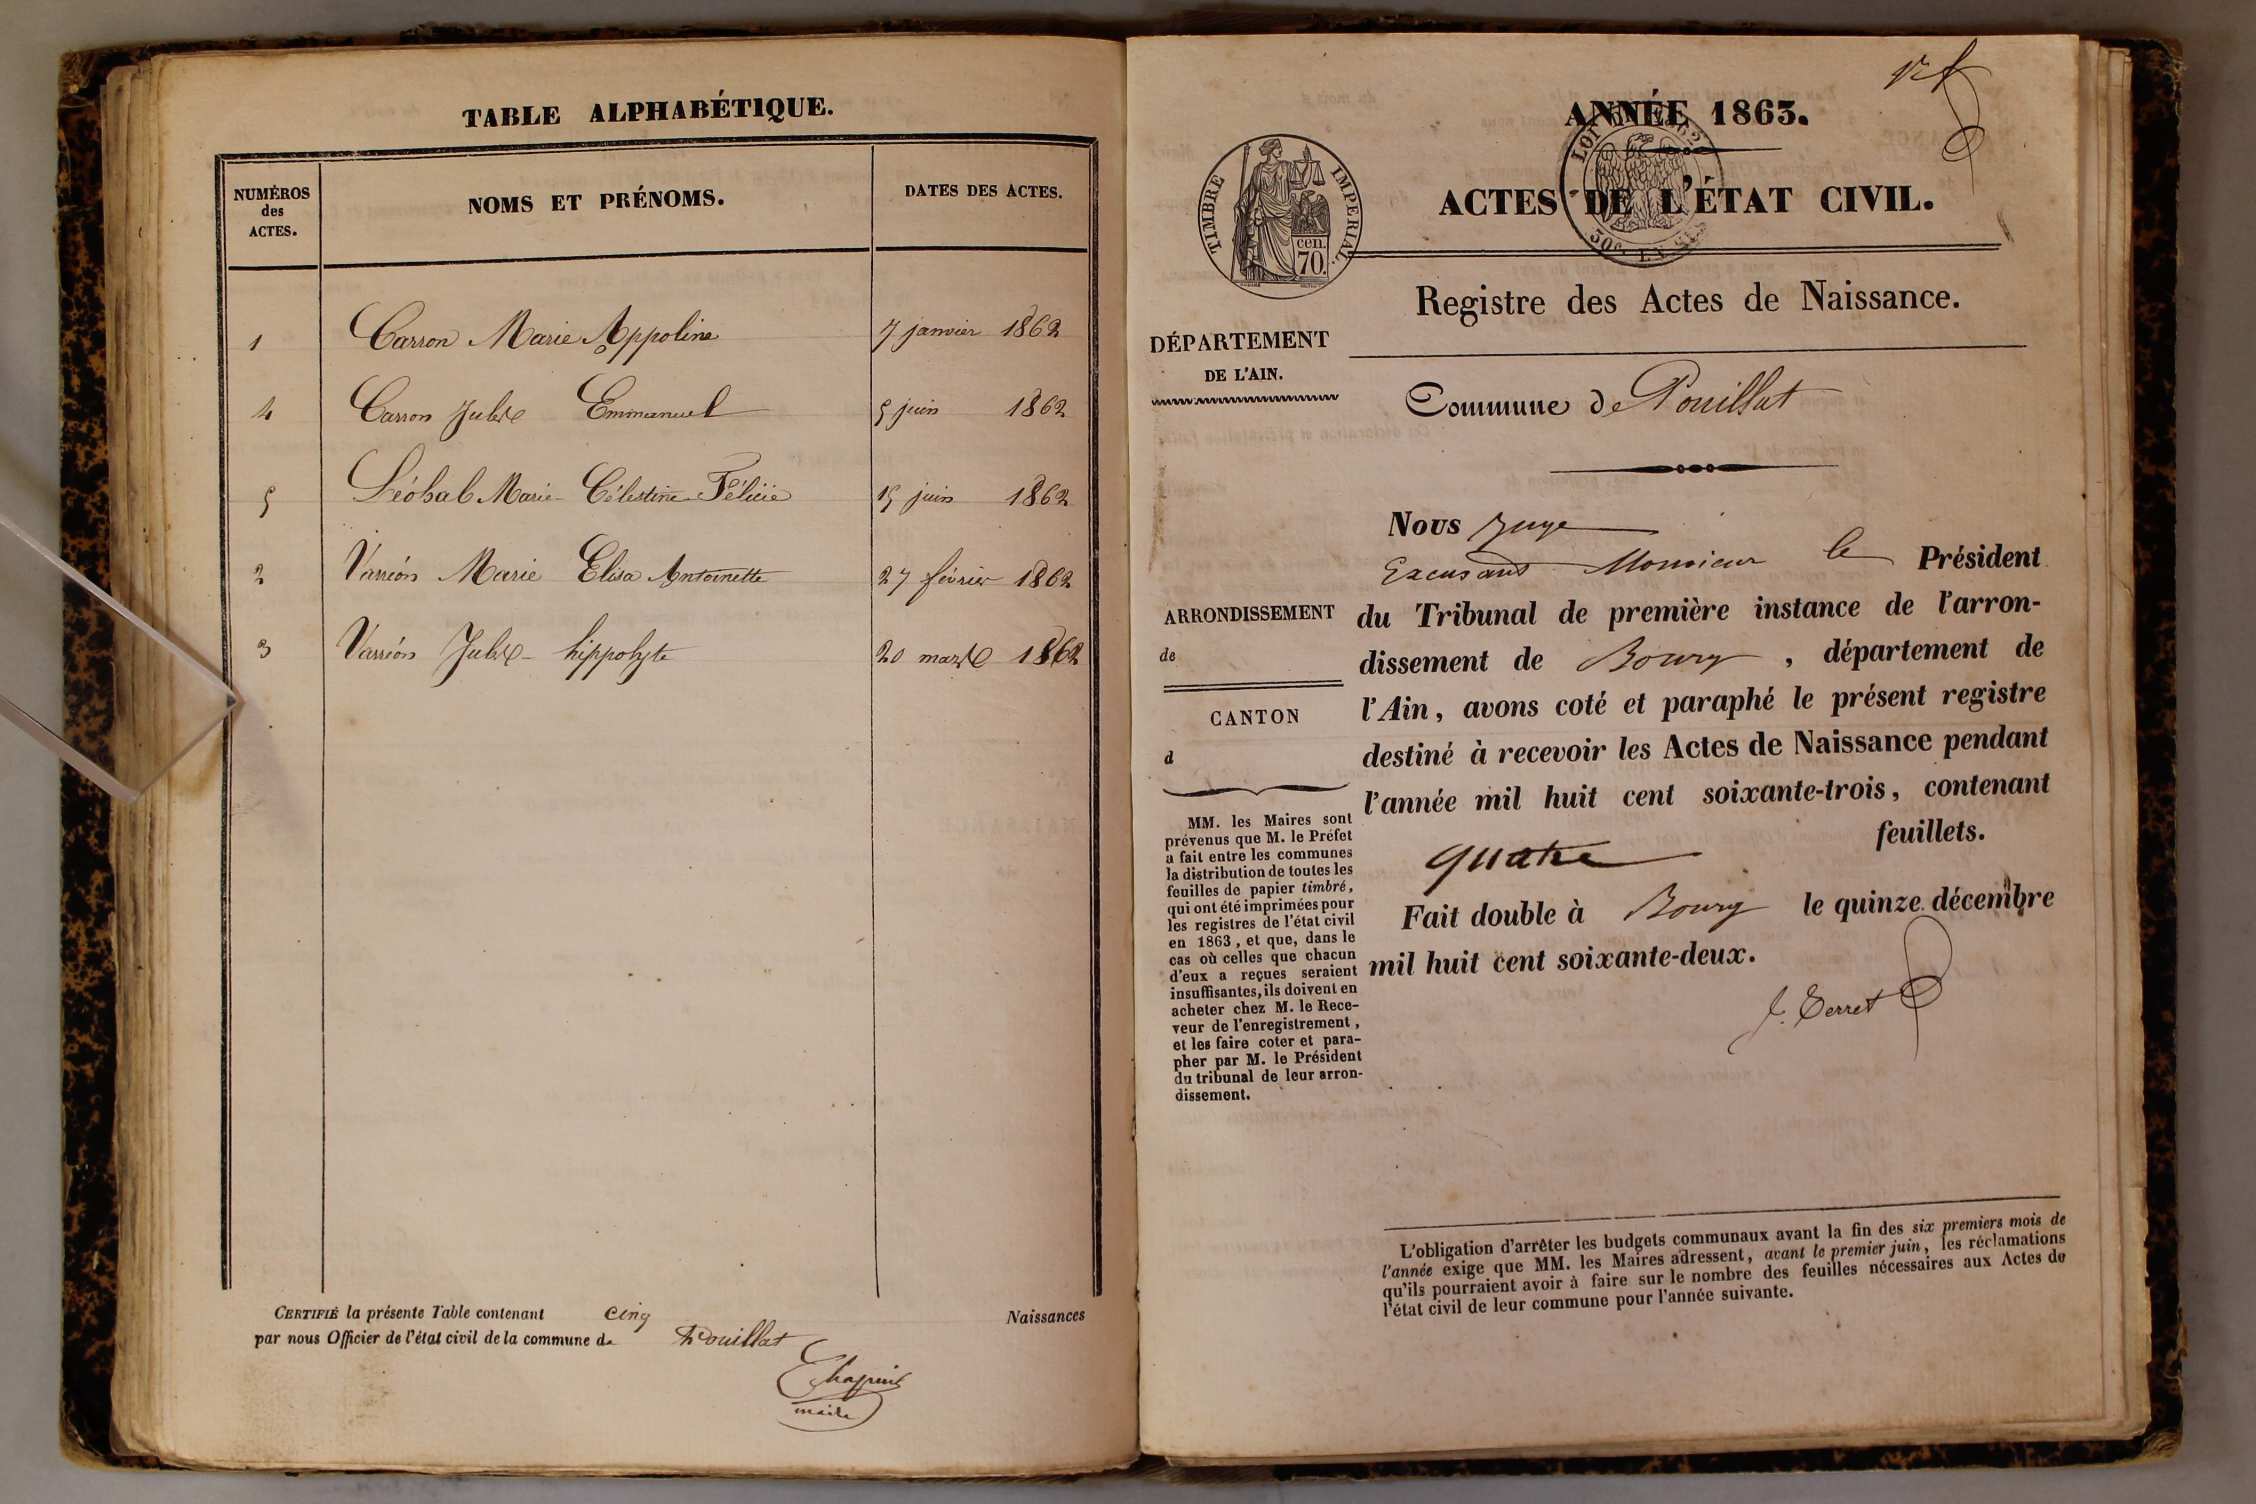 TABLE ALPHABÉTIQUE.
NUMÉROS des ACTES.
NOMS ET PRÉNOMS.
DATES DES ACTES.
1 Carron Marie Appoline 7 janvier 1862
4 Carron Jules Emmanuel 5 juin 1862
5 Léobal Marie Célestine Félicie 15 juin 1862
2 Varréon Marie Elisa Antoinette 27 février 1862
3 Varréon Jules hippolyte 20 mars 1862
CERTIFIÉ la présente Table contenant cinq Naissances
par nous Officier de l'état civil de la commune de Pouillat
maire
ANNÉE 1863.
TIMBRE IMPERIAL.
cen.
70.
ACTES DE L'ÉTAT CIVIL.
Registre des Actes de Naissance.
DÉPARTEMENT
DE L'AIN.
Commune de Pouillat
ARRONDISSEMENT
de
CANTON
d
MM. les Maires sont
prévenus que M. le Préfet
a fait entre les communes
la distribution de toutes les
feuilles de papier timbré,
qui ont été imprimées pour
les registres de l'état civil
en 1863, et que, dans le
cas où celles que chacun
d'eux a reçues seraient
insuffisantes, ils doivent en
acheter chez M. le Rece-
veur de l'enregistrement,
et les faire coter et para-
pher par M. le Président
du tribunal de leur arron-
dissement.
Nous Juge
Excusant Monsieur le Président
du Tribunal de première instance de l'arron-
dissement de Bourg, département de
l'Ain, avons coté et paraphé le présent registre
destiné à recevoir les Actes de Naissance pendant
l'année mil huit cent soixante-trois, contenant
quatre feuillets.
Fait double à Bourg le quinze décembre
mil huit cent soixante-deux.
Terret
L'obligation d'arrêter les budgets communaux avant la fin des six premiers mois de
l'année exige que MM. les Maires adressent, avant le premier juin, les réclamations
qu'ils pourraient avoir à faire sur le nombre des feuilles nécessaires aux Actes de
l'état civil de leur commune pour l'année suivante.